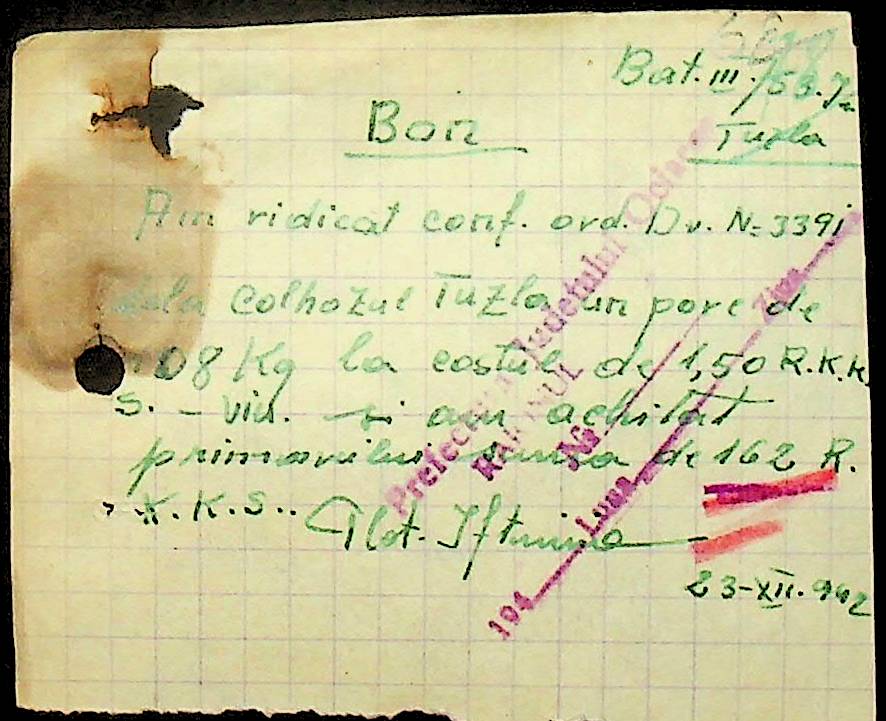 Bat. III./53. Jn
Tuzla
Bon
Am ridicat conf. ord. Dv. N= 3391
dela colhozul Tuzla un porc de
108 Kg la costul de 1,50 R.K.K.
S. - viu. si am achitat
primarului suma de 162 R.
K.K.S..
Plot. Iftimie
23-XII.942
Prefectura Judetului Oceacov
RAIONUL
No
194 Luna Ziua